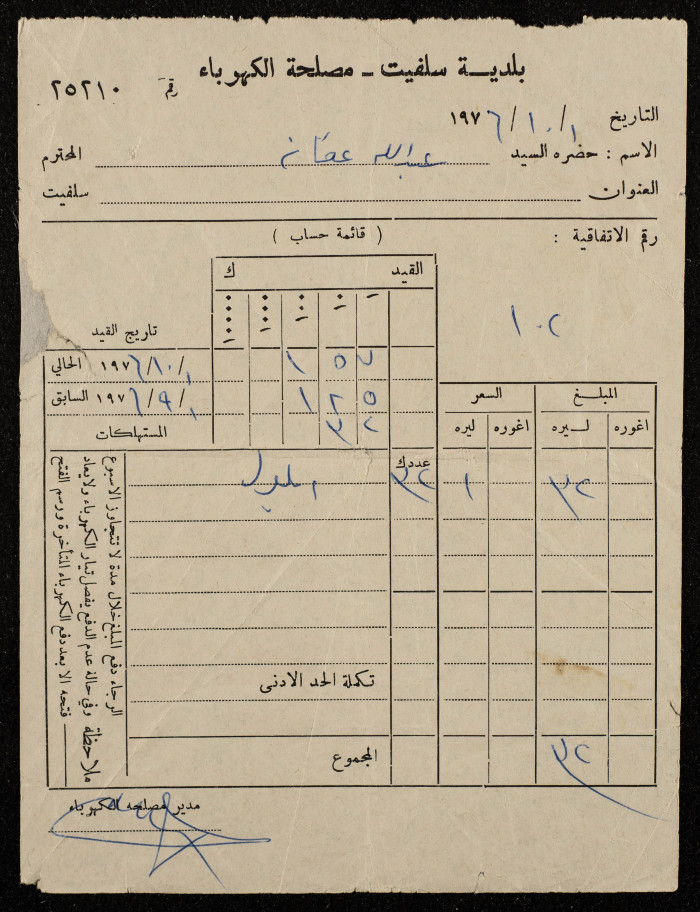 بلديـة سلفيت ـ مصلحة الكهرباء
رقم ٢٥٢١٠
التاريخ ١ / ١٠ / ١٩٧٦
الاسم : حضره السيد عبدالله عفانه المحترم
العنوان سلفيت
رقم الاتفاقية :
( قائمة حساب )
١٠٢
القيد ك
١ ١٠ ١٠٠ ١٠٠٠ ١٠٠٠٠
تاريخ القيد
الحالي ١ / ١٠ / ١٩٧٦ ١ ٥ ٧
السابق ١ / ٩ / ١٩٧٦ ١ ٢ ٥
المستهلكات ٣ ٢
المبلـغ السعر
اغوره ليـره اغوره ليره
عددك
٣٢ ١ ٣٢ ايلول
تكملة الحد الادنى
المجموع
٣٢
ملاحظة الرجاء دفع المبلغ خلال مدة لا تتجاوز الاسبوع
وفي حالة عدم الدفع يفصل تيار الكهرباء ولا يعاد
فتحه الا بعد دفع الكهرباء المتأخرة ورسم الفتح
مدير مصلحه الكهرباء